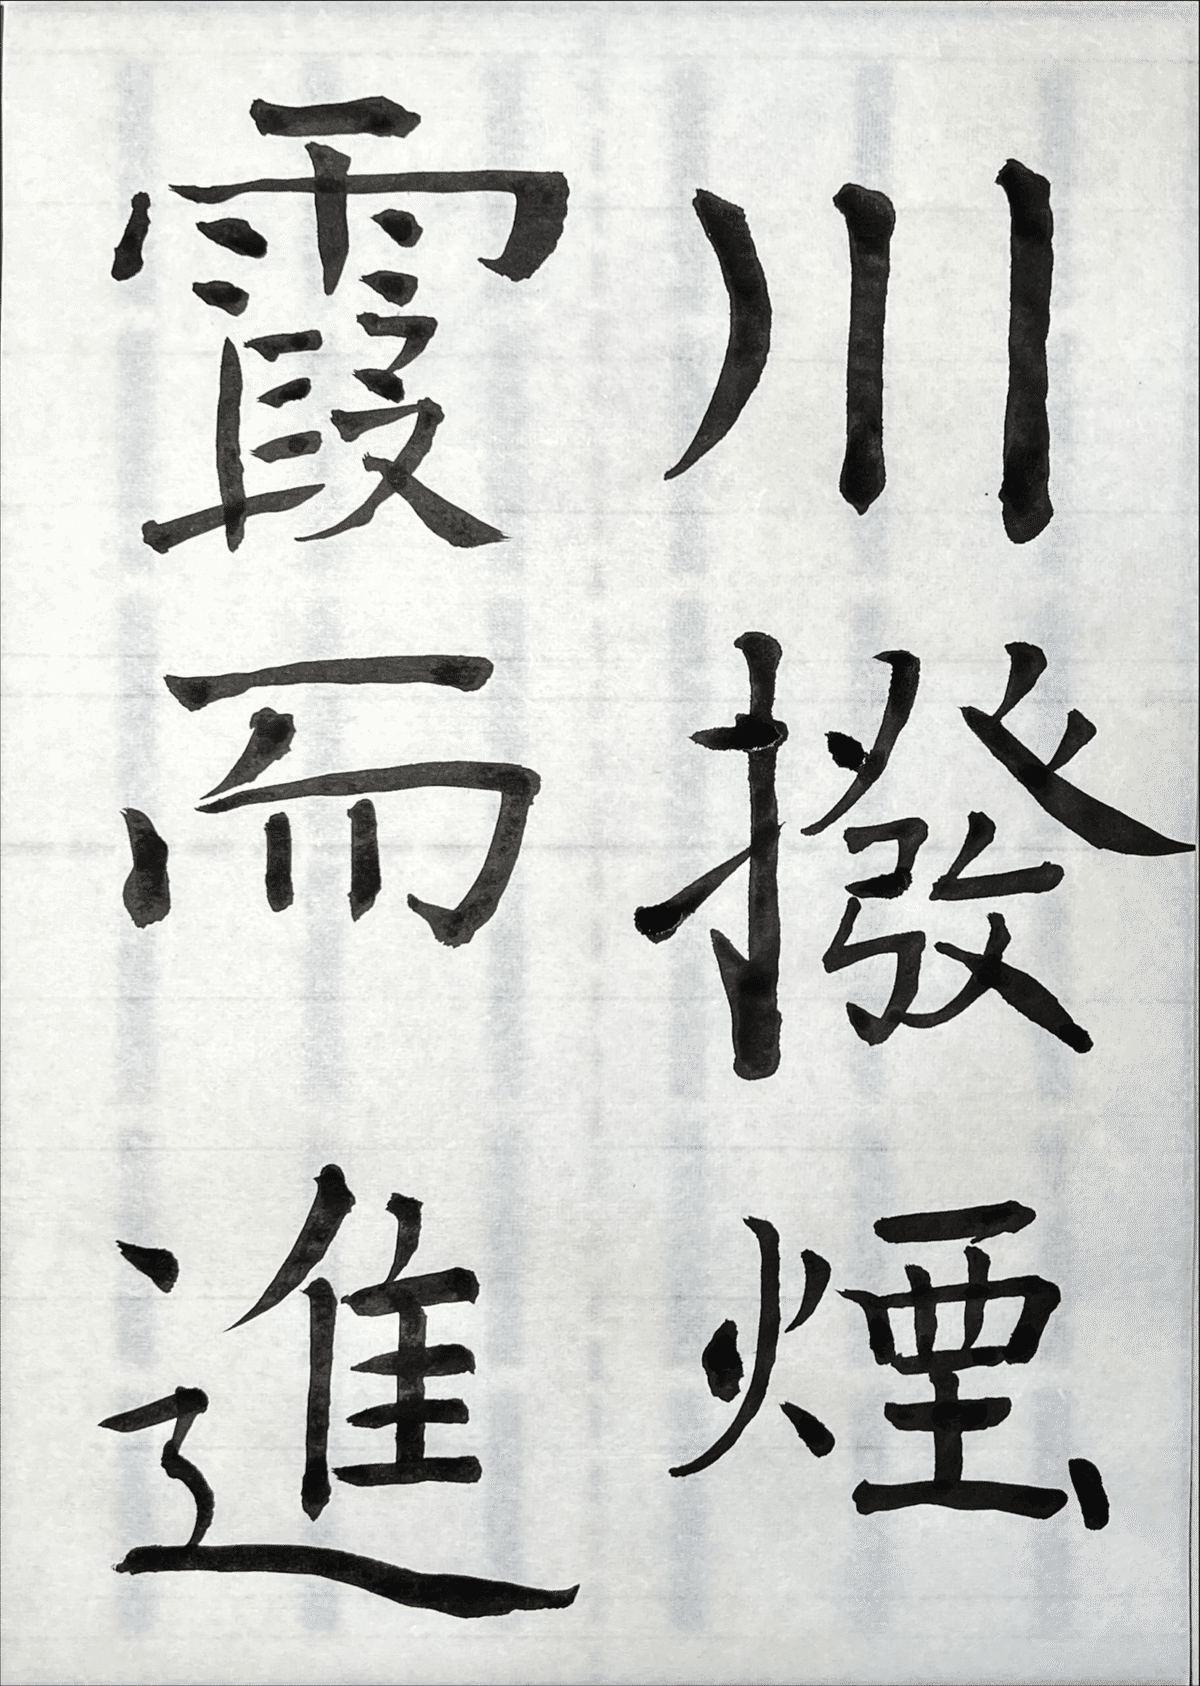 川撥煙
霞而進